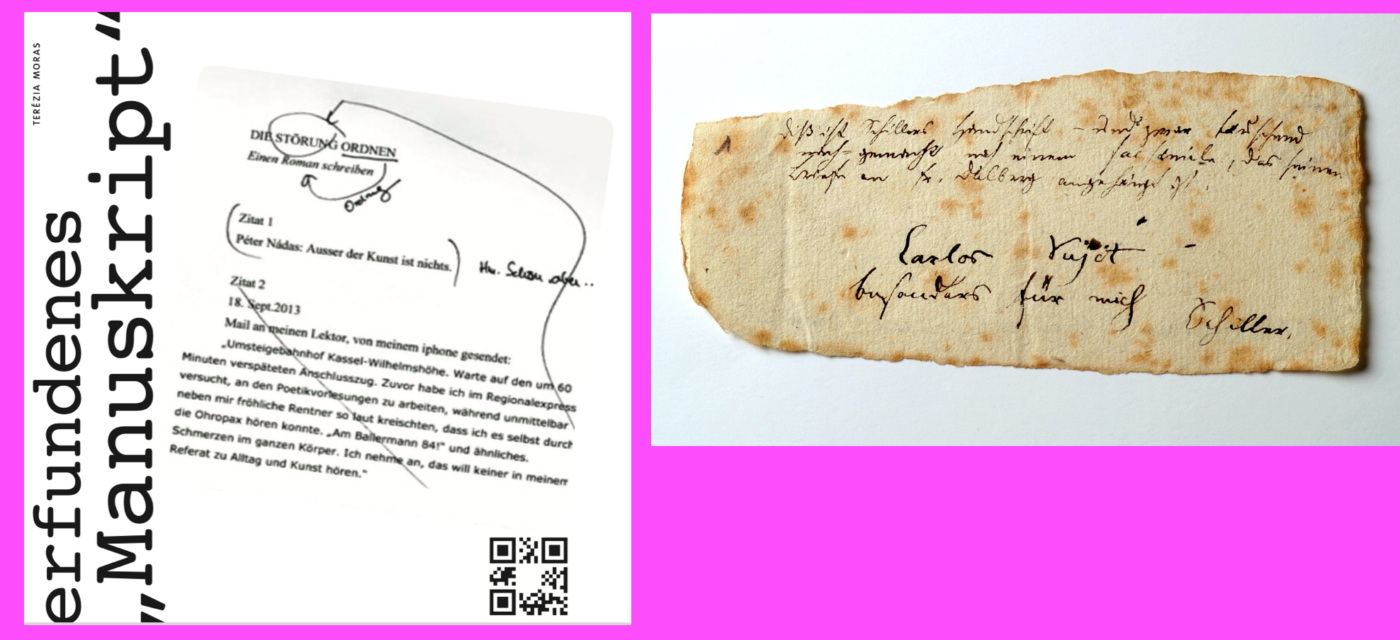 TERÉZIA MORAS
erfundenes
„Manuskript“
DIE STÖRUNG ORDNEN
Einen Roman schreiben
Ordnung
Zitat 1
Péter Nádas: Ausser der Kunst ist nichts.
Hm. Schon aber..
Zitat 2
18. Sept.2013
Mail an meinen Lektor, von meinem iphone gesendet:
„Umsteigebahnhof Kassel-Wilhelmshöhe. Warte auf den um 60
Minuten verspäteten Anschlusszug. Zuvor habe ich im Regionalexpress
versucht, an den Poetikvorlesungen zu arbeiten, während unmittelbar
neben mir fröhliche Rentner so laut kreischten, dass ich es selbst durch
die Ohropax hören konnte. „Am Ballermann 84!“ und ähnliches.
Schmerzen im ganzen Körper. Ich nehme an, das will keiner in meinem
Referat zu Alltag und Kunst hören.“
1
diß ist Schillers Handschrift - und zwar täuschend
nach-gemacht mit einem Facsimile, das seinen
Briefen an Fr. Dalberg angehängt ist.
Carlos
besonders für mich
Schiller.